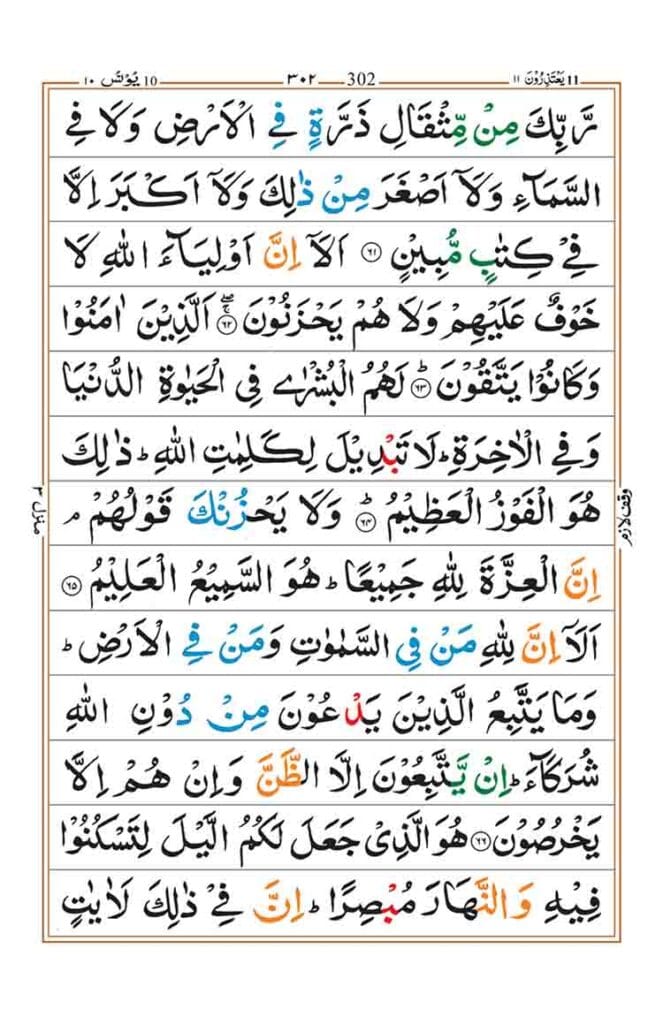 11 يَعْتَذِرُوْنَ ١١ 302 ٣٠٢ 10 يُوْنُسَ ١٠
رَّبِّكَ مِنْ مِّثْقَالِ ذَرَّةٍ فِي الْاَرْضِ وَلَا فِي
السَّمَآءِ وَلَآ اَصْغَرَ مِنْ ذٰلِكَ وَلَآ اَكْبَرَ اِلَّا
فِيْ كِتٰبٍ مُّبِيْنٍ ۝٦١ اَلَآ اِنَّ اَوْلِيَآءَ اللّٰهِ لَا
خَوْفٌ عَلَيْهِمْ وَلَا هُمْ يَحْزَنُوْنَ ۝٦٢ اَلَّذِيْنَ اٰمَنُوْا
وَكَانُوْا يَتَّقُوْنَ ۝٦٣ؕ لَهُمُ الْبُشْرٰى فِي الْحَيٰوةِ الدُّنْيَا
وَفِي الْاٰخِرَةِؕ لَا تَبْدِيْلَ لِكَلِمٰتِ اللّٰهِؕ ذٰلِكَ
هُوَ الْفَوْزُ الْعَظِيْمُ ۝٦٤ؕ وَلَا يَحْزُنْكَ قَوْلُهُمْ ۘ
اِنَّ الْعِزَّةَ لِلّٰهِ جَمِيْعًاؕ هُوَ السَّمِيْعُ الْعَلِيْمُ ۝٦٥
اَلَآ اِنَّ لِلّٰهِ مَنْ فِي السَّمٰوٰتِ وَمَنْ فِي الْاَرْضِؕ
وَمَا يَتَّبِعُ الَّذِيْنَ يَدْعُوْنَ مِنْ دُوْنِ اللّٰهِ
شُرَكَآءَؕ اِنْ يَّتَّبِعُوْنَ اِلَّا الظَّنَّ وَاِنْ هُمْ اِلَّا
يَخْرُصُوْنَ ۝٦٦ هُوَ الَّذِيْ جَعَلَ لَكُمُ الَّيْلَ لِتَسْكُنُوْا
فِيْهِ وَالنَّهَارَ مُبْصِرًاؕ اِنَّ فِيْ ذٰلِكَ لَاٰيٰتٍ
وقف لازم
منزل ٣